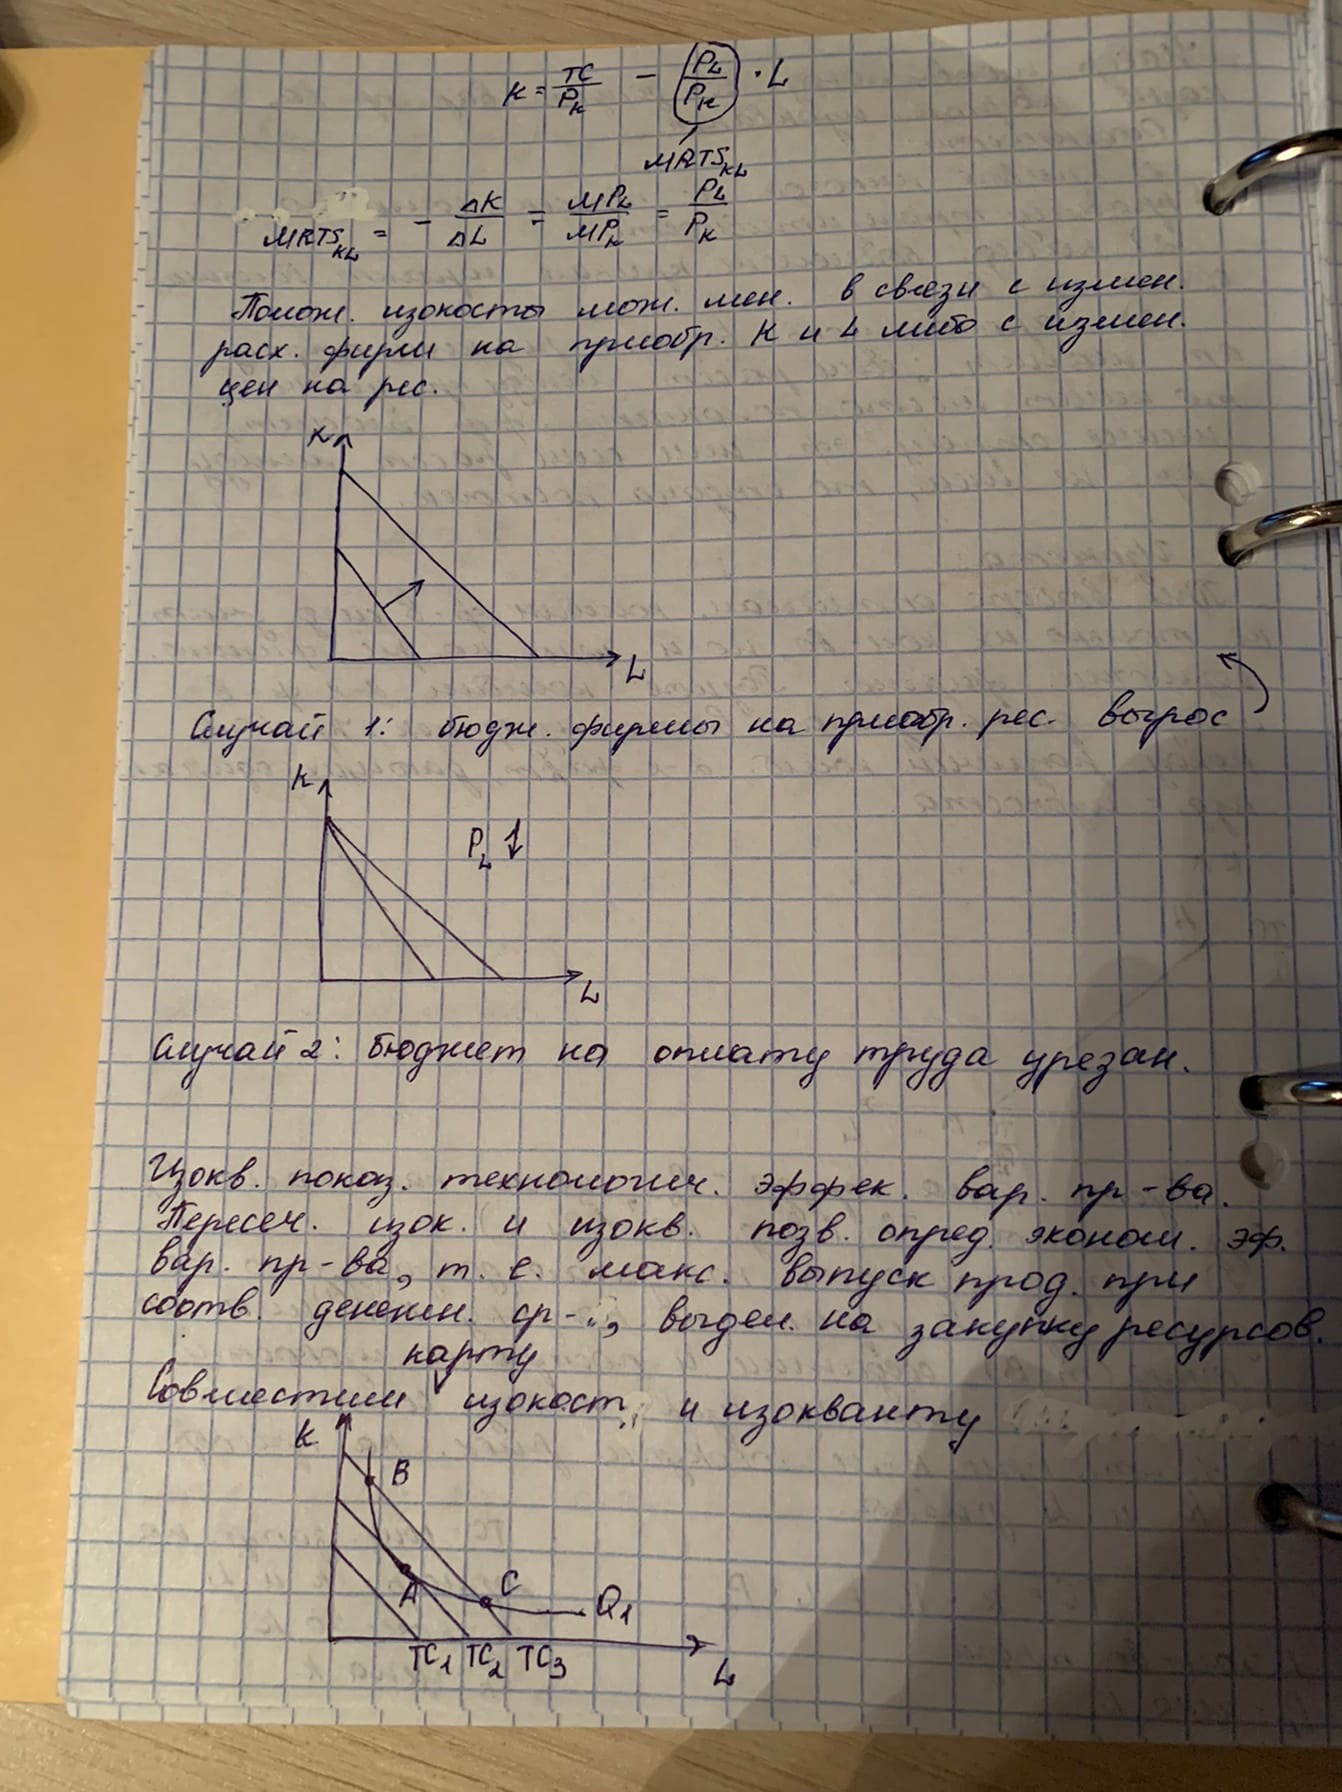 K = TC/Pк - (PL/Pк) · L
MRTS KL
MRTS KL = - ΔK/ΔL = MPL/MPк = PL/Pк
Полож. изокосты мож. мен. в связи с измен.
расх. фирмы на приобр. K и L либо с измен.
цен на рес.
K
L
Случай 1: бюдж. фирмы на приобр. рес. вырос
K
PL ↕
L
Случай 2: бюджет на оплату труда урезан.
Изокв. показ. технологич. эффек. вар. пр-ва.
Пересеч. изок. и изокв. позв. опред. эконом. эф.
вар. пр-ва, т. е. макс. выпуск прод. при
соотв. денежн. ср-, выдел. на закупку ресурсов.
карту
Совместим изокост и изокванту
K
B
A
C
Q1
TC1 TC2 TC3
L